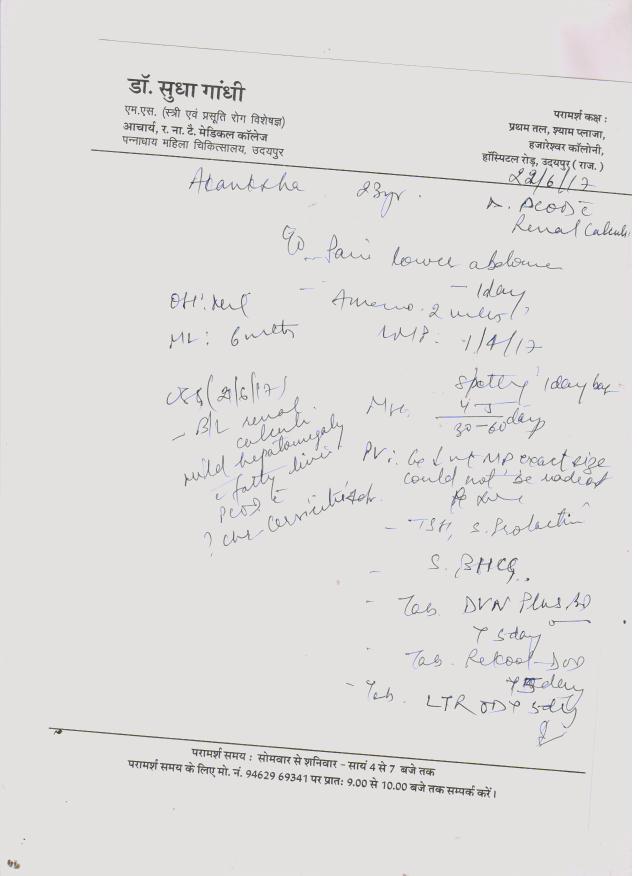 डॉ. सुधा गांधी
एम.एस. (स्त्री एवं प्रसूति रोग विशेषज्ञ)
आचार्य, र. ना. टै. मेडिकल कॉलेज
पन्नाधाय महिला चिकित्सालय, उदयपुर
परामर्श कक्ष :
प्रथम तल, श्याम प्लाजा,
हजारेश्वर कॉलोनी,
हॉस्पिटल रोड़, उदयपुर ( राज. )
22/6/17
Akanksha 23yr.
PCOD c̄
Renal Calculi
c/o Pain lower abdome
- 1day
OH: Nil
Ameno. 2
ML: 6 mnths
LMP: 1/4/17
Spotting 1day
(21/6/17)
MH: 4-5
30-60 days
- B/L renal
calculi
mild hepatomegaly
c̄ fatty liver
PCOD c̄
? chr cervicitis
PV: exact size
could not be made out
- TSH, S. Prolactin
- S. BHCG
- Tab. DVN Plus BD
5day
- Tab. Rekool-D OD
5day
- Tab. LTR OD 5day
परामर्श समय : सोमवार से शनिवार – सायं 4 से 7 बजे तक
परामर्श समय के लिए मो. नं. 94629 69341 पर प्रात: 9.00 से 10.00 बजे तक सम्पर्क करें।